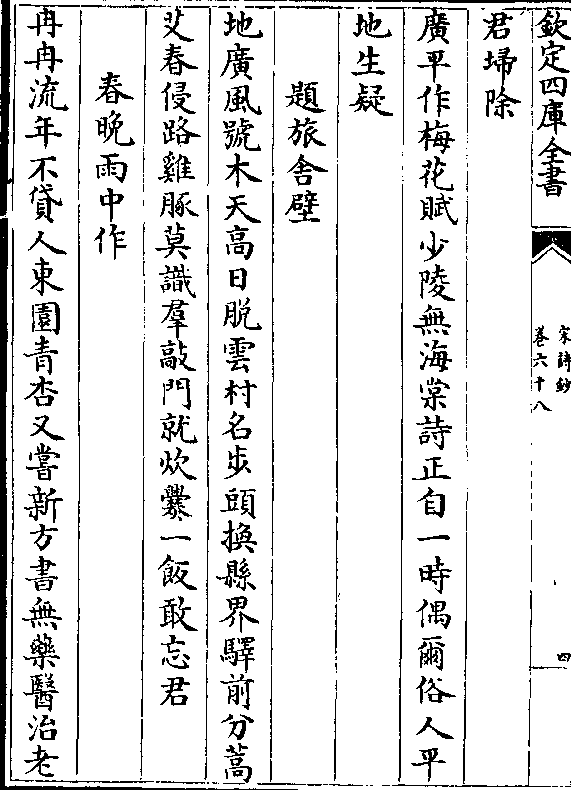 欽定四庫全書
宋詩鈔
卷六十八
四
君埽除
廣平作梅花賦少陵無海棠詩正自一時偶爾俗人平
地生疑
題旅舎壁
地廣風號木天高日脱雲村名步頭換縣界驛前分蒿
艾春侵路雞豚莫識羣敲門就炊爨一飯敢忘君
春晚雨中作
冉冉流年不貸人東園青杏又嘗新方書無藥醫治老